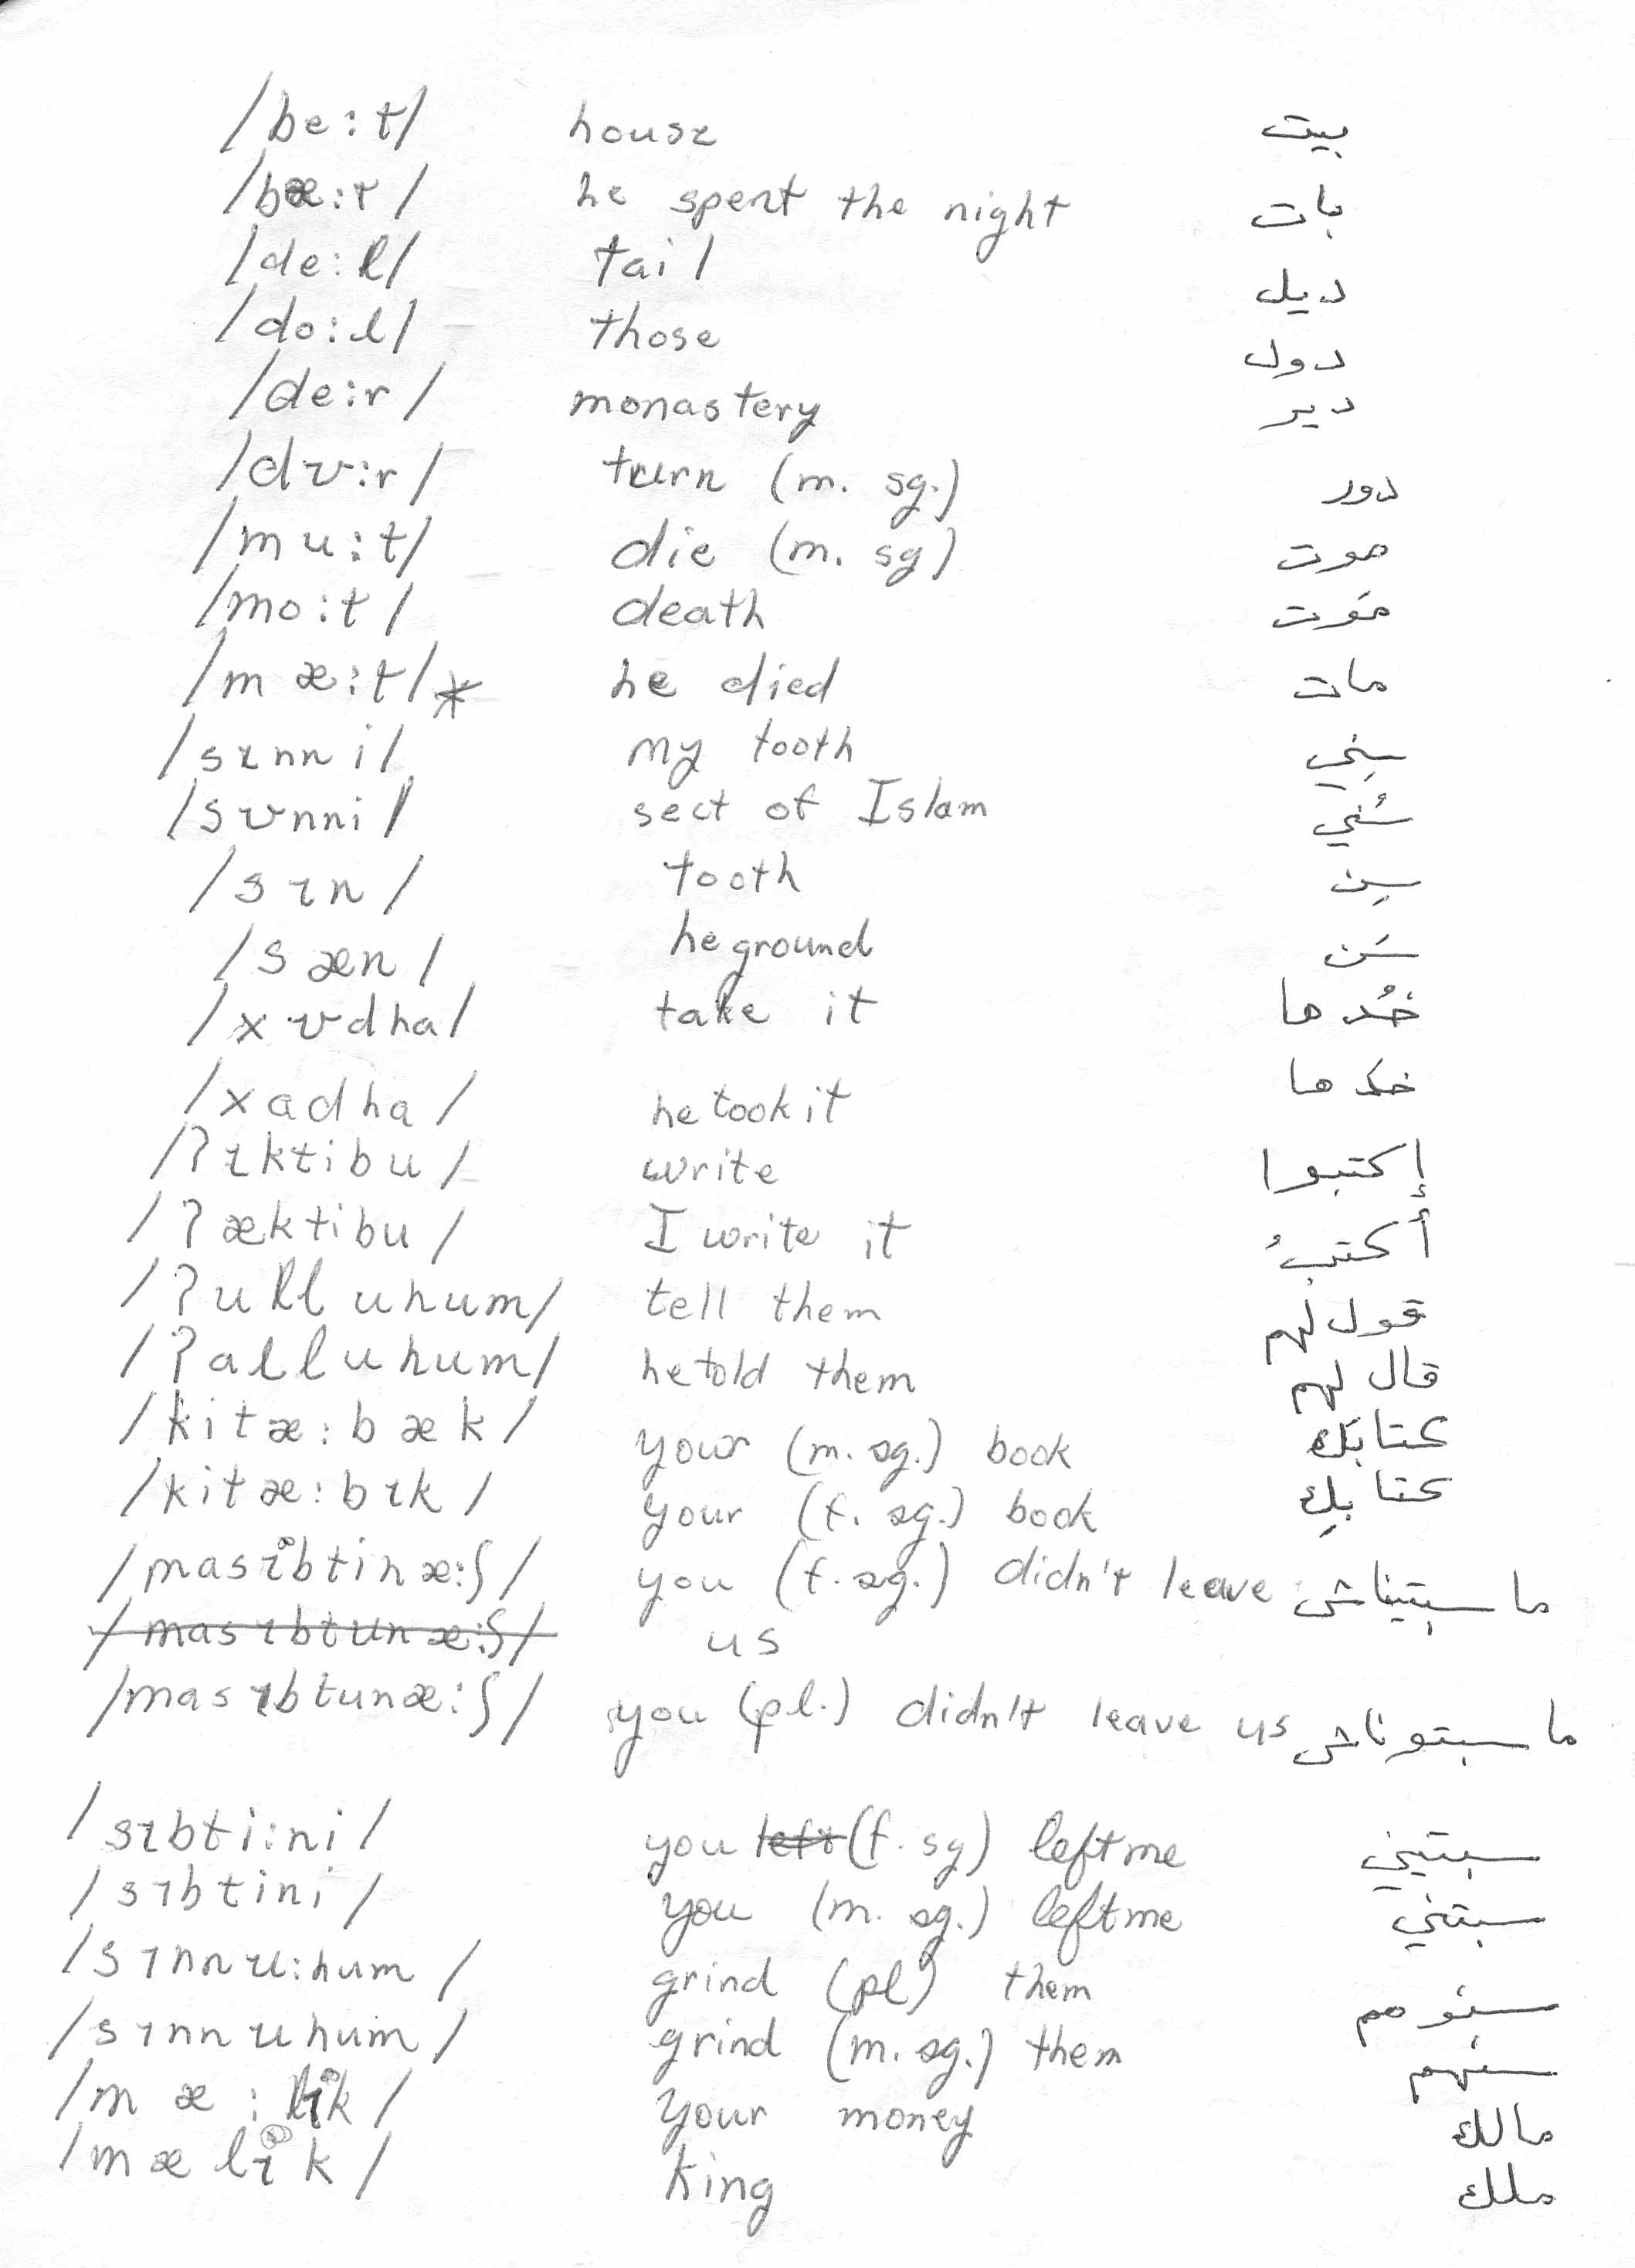 /be:t/ house بيت
/bæ:t/ he spent the night بات
/de:l/ tail ديل
/do:l/ those دول
/de:r/ monastery دير
/dʊ:r/ turn (m. sg.) دور
/mu:t/ die (m. sg) موت
/mo:t/ death مَوت
/mæ:t/* he died مات
/sɪnni/ my tooth سِني
/sʊnni/ sect of Islam سُني
/sɪn/ tooth سِن
/sæn/ he ground سَن
/xʊdha/ take it خُد ها
/xadha/ he took it خَد ها
/ʔɪktibu/ write إكتبوا
/ʔæktibu/ I write it أكتبُ
/ʔulluhum/ tell them قول لهم
/ʔalluhum/ he told them قال لهم
/kitæ:bæk/ your (m. sg.) book كتابَك
/kitæ:bɪk/ your (f. sg.) book كتابِك
/masɪbtinæ:ʃ/ you (f. sg.) didn't leave ما سبتيناش
/masɪbtunæ:ʃ/ us
/masɪbtunæ:ʃ/ you (pl.) didn't leave us ما سبتوناش
/sɪbti:ni/ you left (f. sg) left me سبتيني
/sɪbtini/ you (m. sg.) left me سبتني
/sɪnnu:hum/ grind (pl) them سنو هم
/sɪnnuhum/ grind (m. sg.) them سنهم
/mæ:lɪk/ your money مالك
/mælɪk/ king ملك